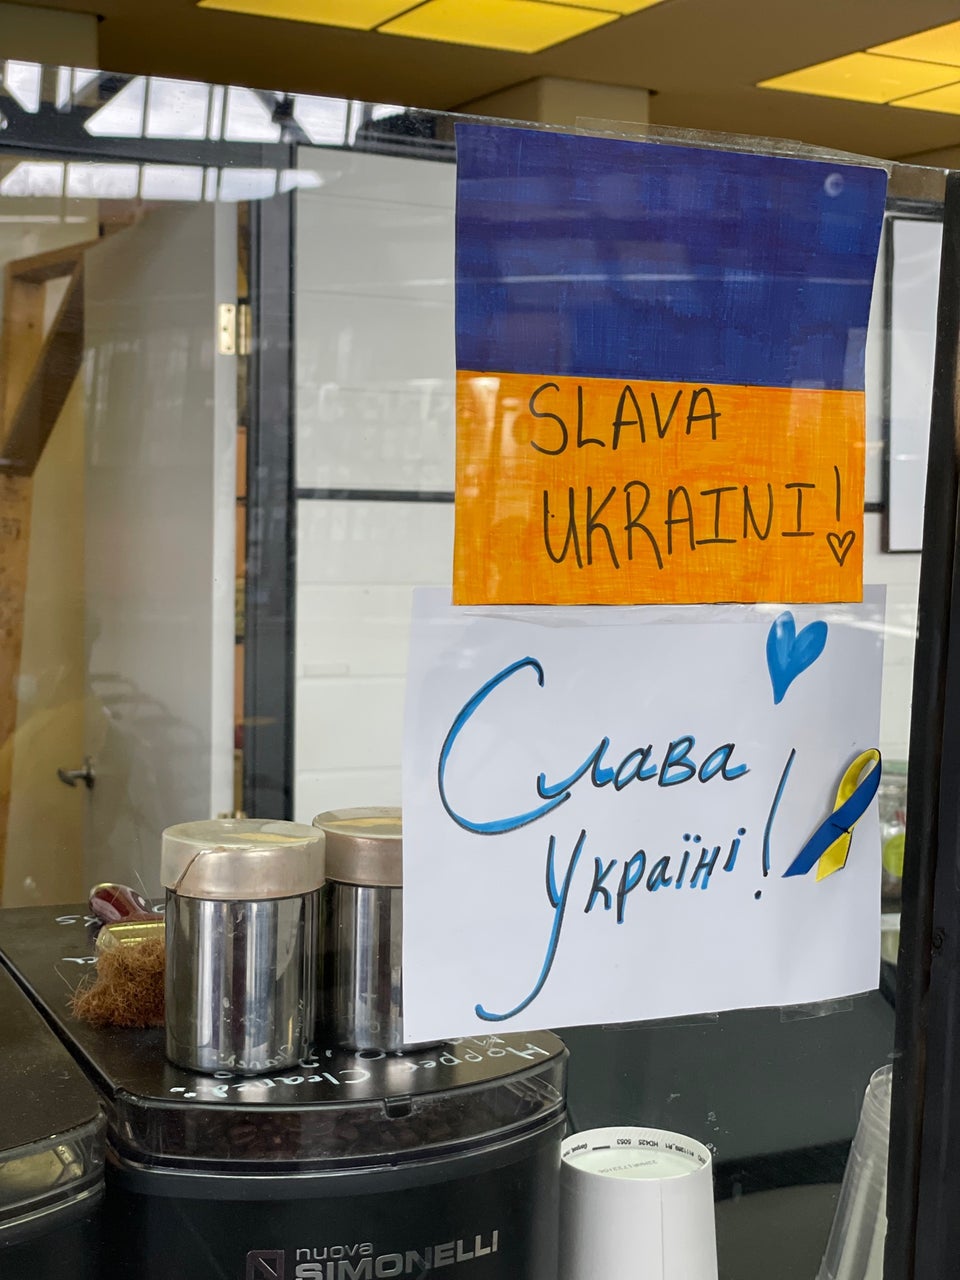 SLAVA
UKRAINI!
Слава
Україні!
Hopper Cleaned:
nuova
SIMONELLI